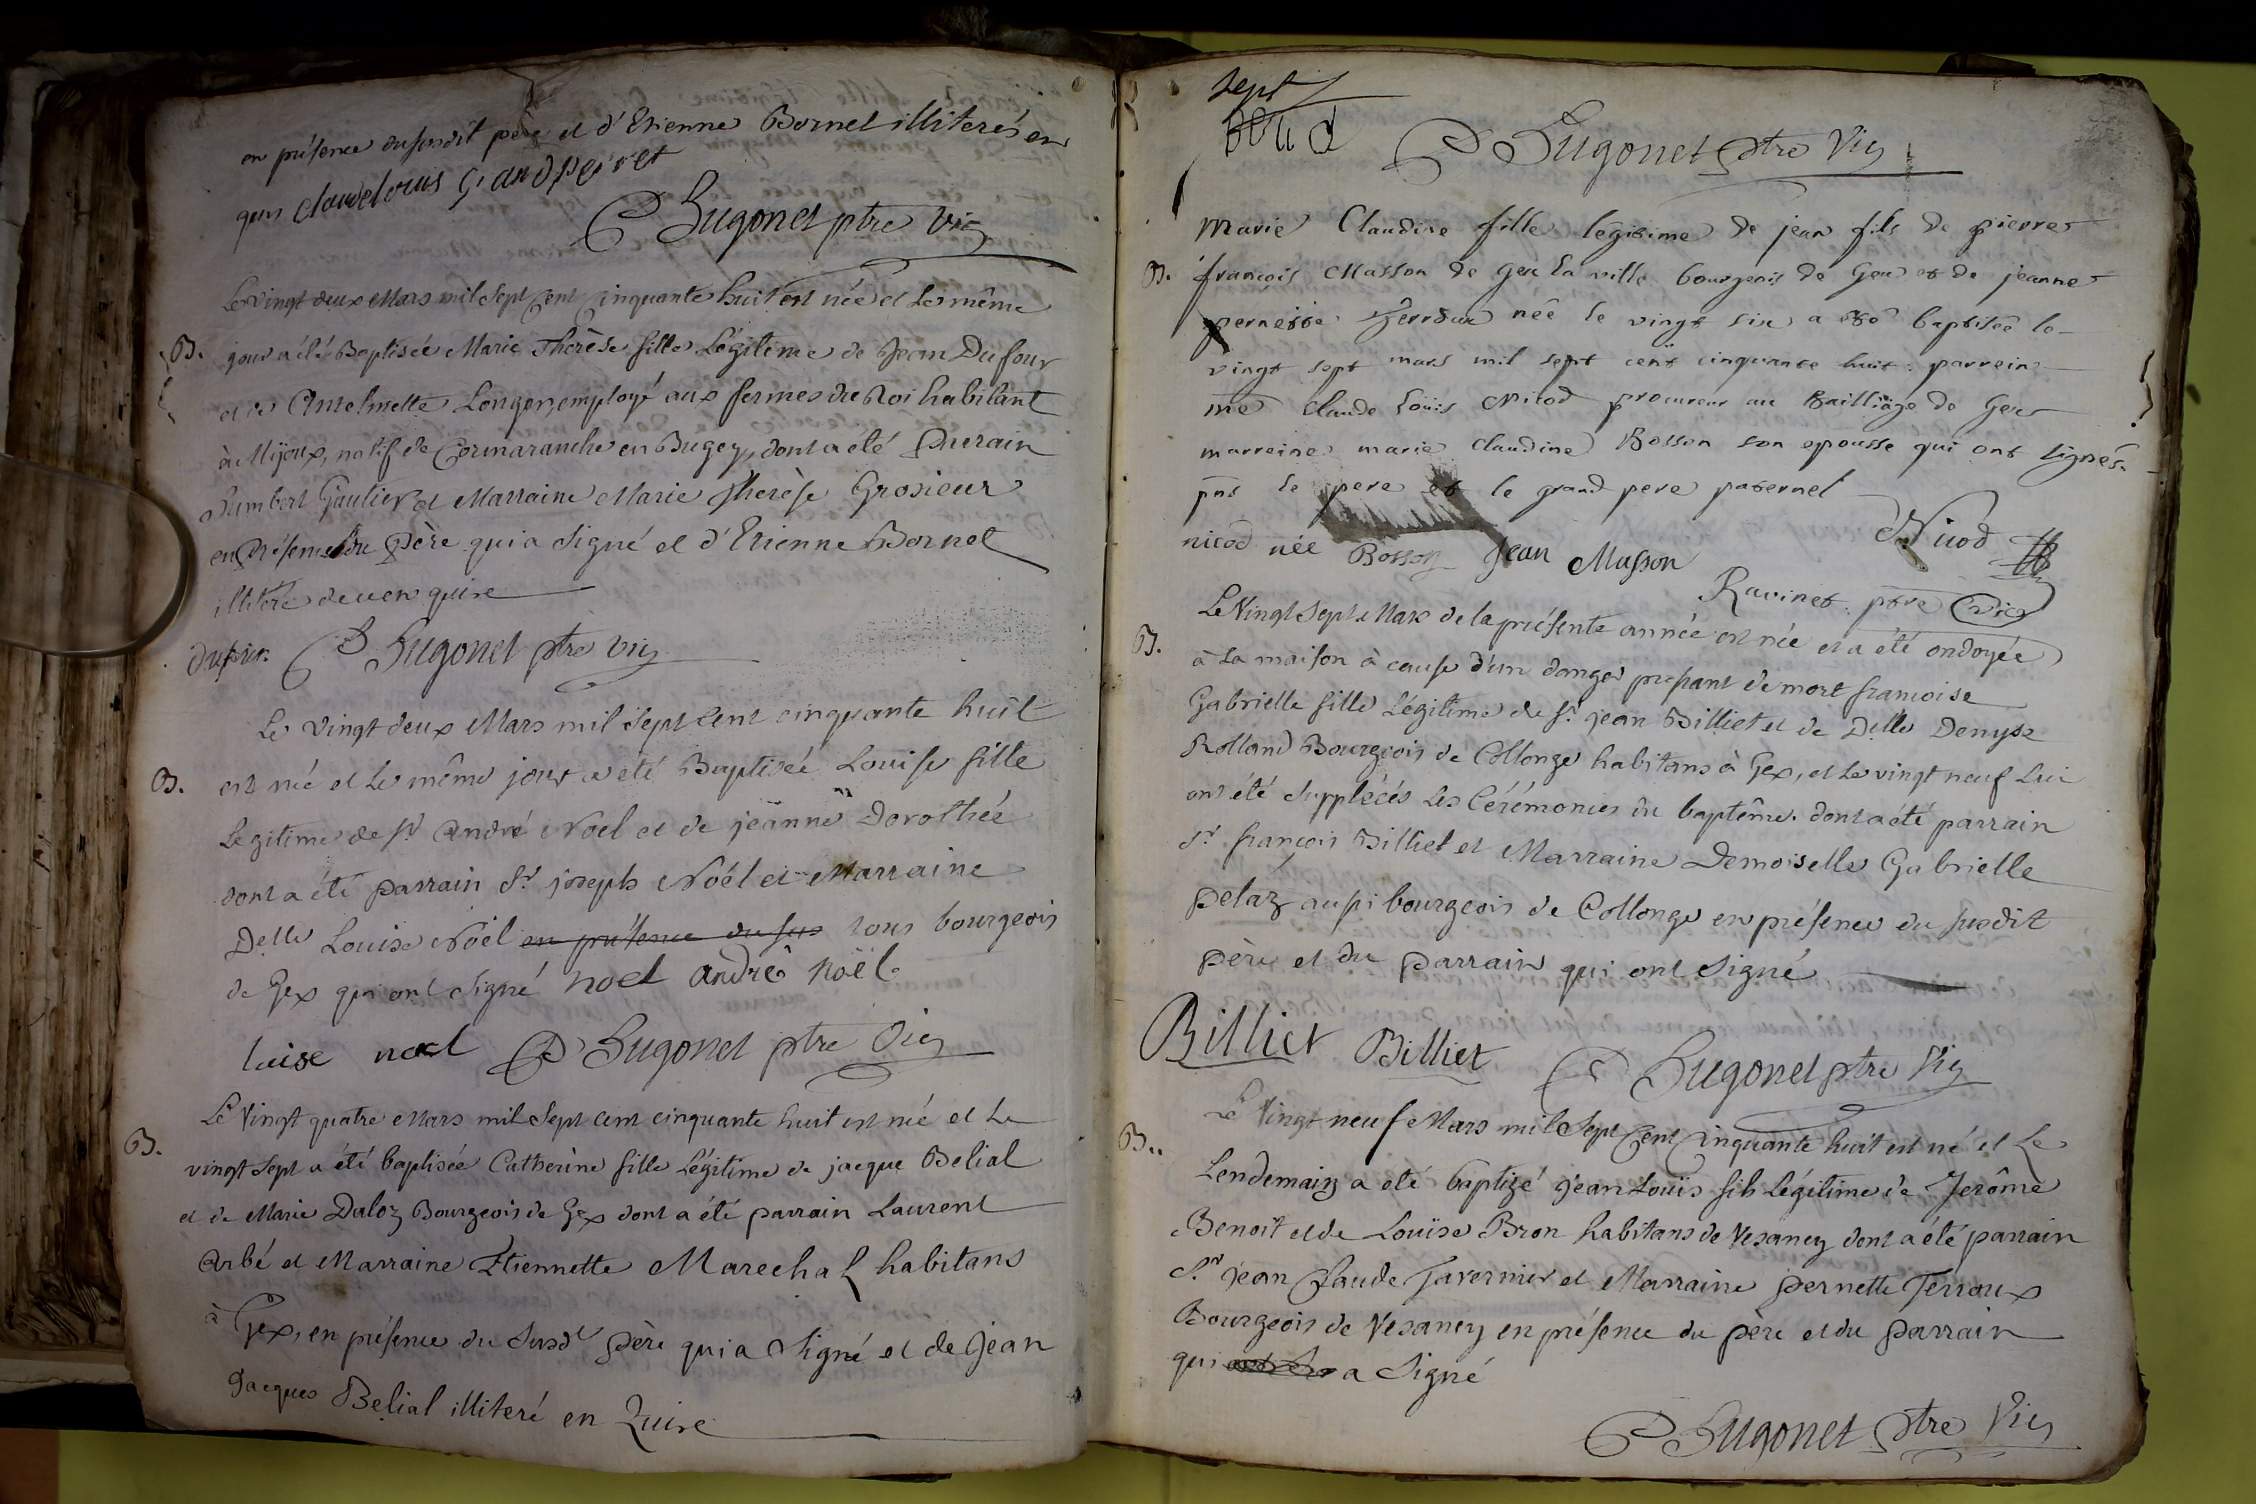 en présence dususdit père et d'Etienne Bornet illiterés en
quis claude louis grandperret
Sugonet ptre vic
Le vingt deux Mars mil Sept Cent Cinquante huit est née et le même
B. jour a été Baptisée Marie Thérèse fille Légitime de Jean Dufour
et de Antelmette Longer, employé aux fermes du Roi habitant
à Mijoux, natif de Cormaranche en Bugey, dont a été Parain
humbert Gautier et Marraine Marie Thérèse Grosieur
en Présence du Père qui a Signé et d'Etienne Bornet
illitéré de ce enquire
dufour. Sugonet ptre vic
Le vingt deux Mars mil Sept Cent cinquante huit
B. est née et le même jour a été Baptisée Louise fille
Legitime de Sr André Noel et de jeanne Dorothée
dont a été parrain Sr joseph Noël et Marraine
Delle Louise Noël en présence du sus tous bourgeois
de Gex qui ont Signé noel andré noël
luise noel Sugonet ptre Vic
Le Vingt quatre Mars mil Sept cent cinquante huit est née et le
B. vingt Sept a été baptisée Catherine fille Légitime de jacque Belial
et de Marie Daloz Bourgeois de Gex dont a été parrain Laurent
Arbé et Marraine Etiennette Marechal habitans
à Gex, en présence du Susdt père qui a Signé et de Jean
Jacques Belial illiteré en Quire
sept
Sugonet ptre Vic
Marie Claudine fille legitime de jean fils de pierre
B. françois Masson de Gex la ville bourgeois de Gex et de jeanne
pernette Terroux née le vingt six a été baptisée le
vingt sept mars mil sept cent cinquante huit. parrein
me Claude Loüis Nicod procureur au Bailliage de Gex
marreine marie claudine Bosson son epousse qui ont signés
pns le pere et le grand pere paternel
Nicod
nicod née Bosson Jean Masson
Ravinet ptre Vic
Le Vingt Sept Mars de la présente année est née et a été ondoyée
B. à la maison à cause d'un danger pressant de mort francoise
Gabrielle fille Légitime de Sr jean Billiet et de Delle Denyse
Rolland Bourgeois de Collonge habitans à Gex, et le vingt neuf Lui
ont été Supplééés les Cérémonies du baptême. dont a été parrain
Sr françois Billiet et Marraine Demoiselle Gabrielle
pelaz aussi bourgeois de Collonge en présence du susdit
père et du parrain qui ont Signé
Billiet Billiet Sugonet ptre Vic
Le Vingt neuf Mars mil Sept Cent Cinquante huit est né et Le
B.. Lendemain a été baptizé jean Louïs fils légitime de Jerôme
Benoit et de Louïse Bron habitans de Vesancy dont a été parrain
Sr jean Claude Tavernier et Marraine pernette Terroux
Bourgeois de Vesancy en présence du père et du parrain
qui a Signé
Sugonet ptre Vic